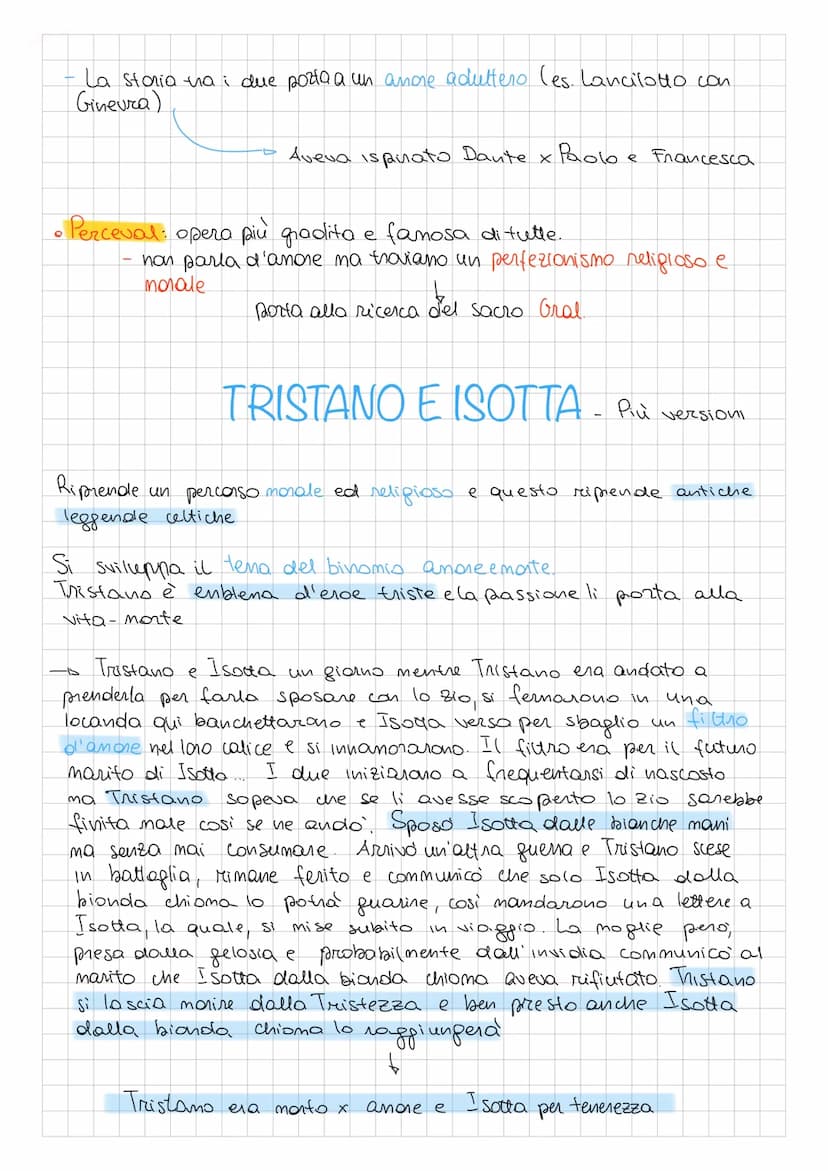 - La storia tra i due porta a un amore adultero (es. Lancilotto con
Ginevra)
Aveva ispirato Dante x Paolo e Francesca
• Perceval: opera più gradita e famosa di tutte.
- non parla d'amore ma troviamo un perfezionismo religioso e
morale
porta alla ricerca del sacro Gral
TRISTANO E ISOTTA - Più versioni
Riprende un percorso morale ed religioso e questo riprende antiche
leggende celtiche
Si sviluppa il tema del binomio amore e morte.
Tristano è enblema d'eroe triste e la passione li porta alla
vita - morte
→ Tristano e Isotta un giorno mentre Tristano era andato a
prenderla per farla sposare con lo zio, si fermarono in una
locanda qui banchettarono e Isotta verso per sbaglio un filtro
d'amore nel loro calice e si innamorarono. Il filtro era per il futuro
marito di Isotta... I due iniziarono a frequentarsi di nascosto
ma Tristano sapeva che se li avesse scoperto lo zio sarebbe
finita male così se ne andò. Sposò Isotta dalle bianche mani
ma senza mai consumare. Arrivò un'altra guerra e Tristano scese
in battaglia, rimane ferito e communicò che solo Isotta dalla
bionda chioma lo potrà guarire, così mandarono una lettere a
Isotta, la quale, si mise subito in viaggio. La moglie però,
presa dalla gelosia e probabilmente dall'invidia communicò al
marito che Isotta dalla bionda chioma aveva rifiutato. Tristano
si lascia morire dalla Tristezza e ben presto anche Isotta
dalla bionda chioma lo raggiungerà
Tristano era morto x amore e Isotta per tenerezza